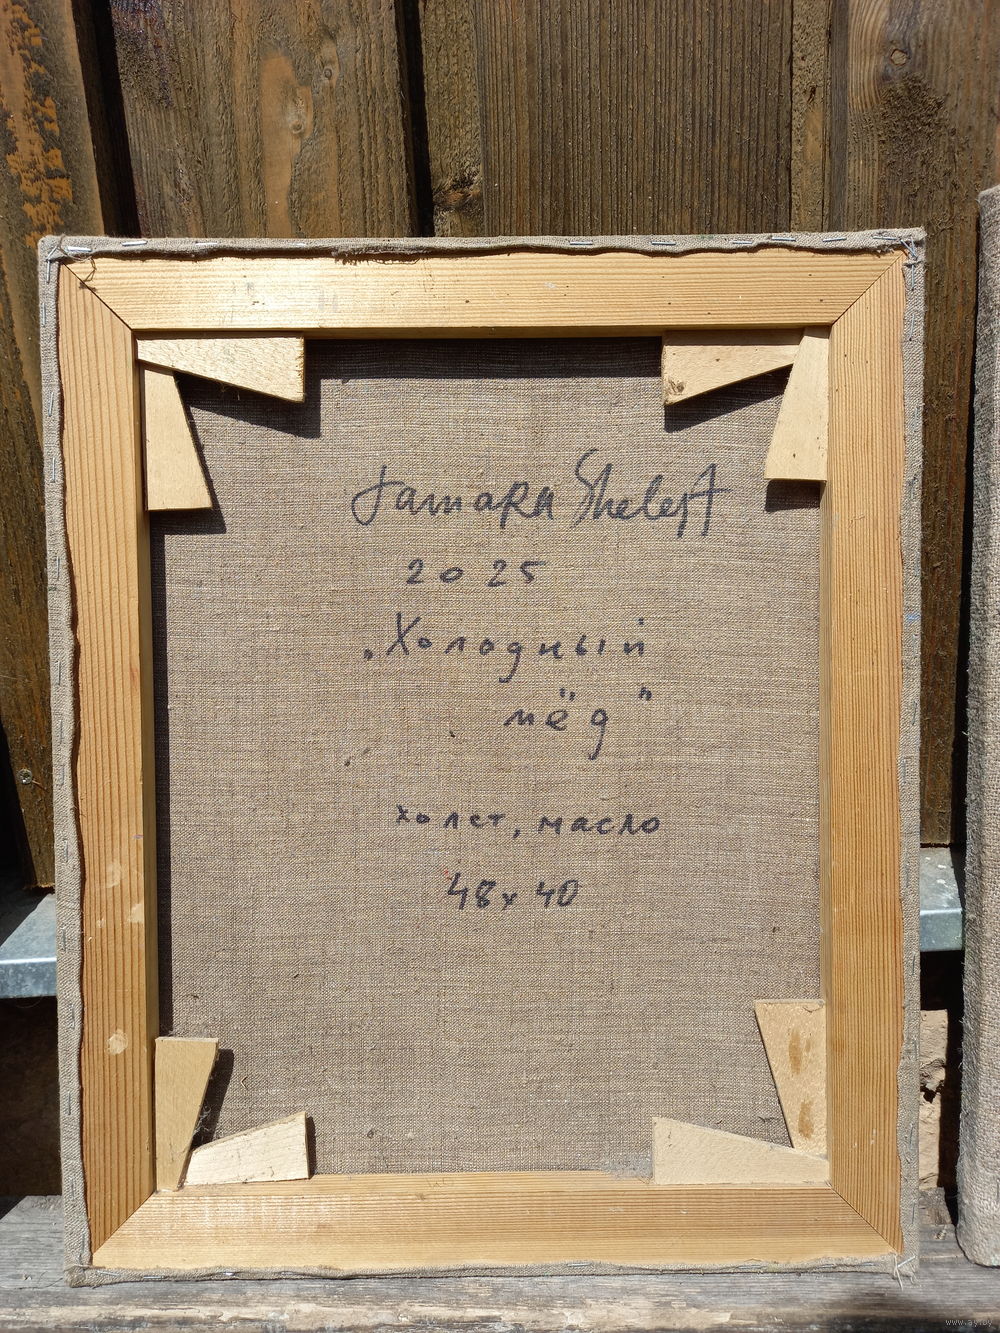 Tamara Shelest
2025
„Холодный
мёд"
холст, масло
48 x 40
www.ay.by